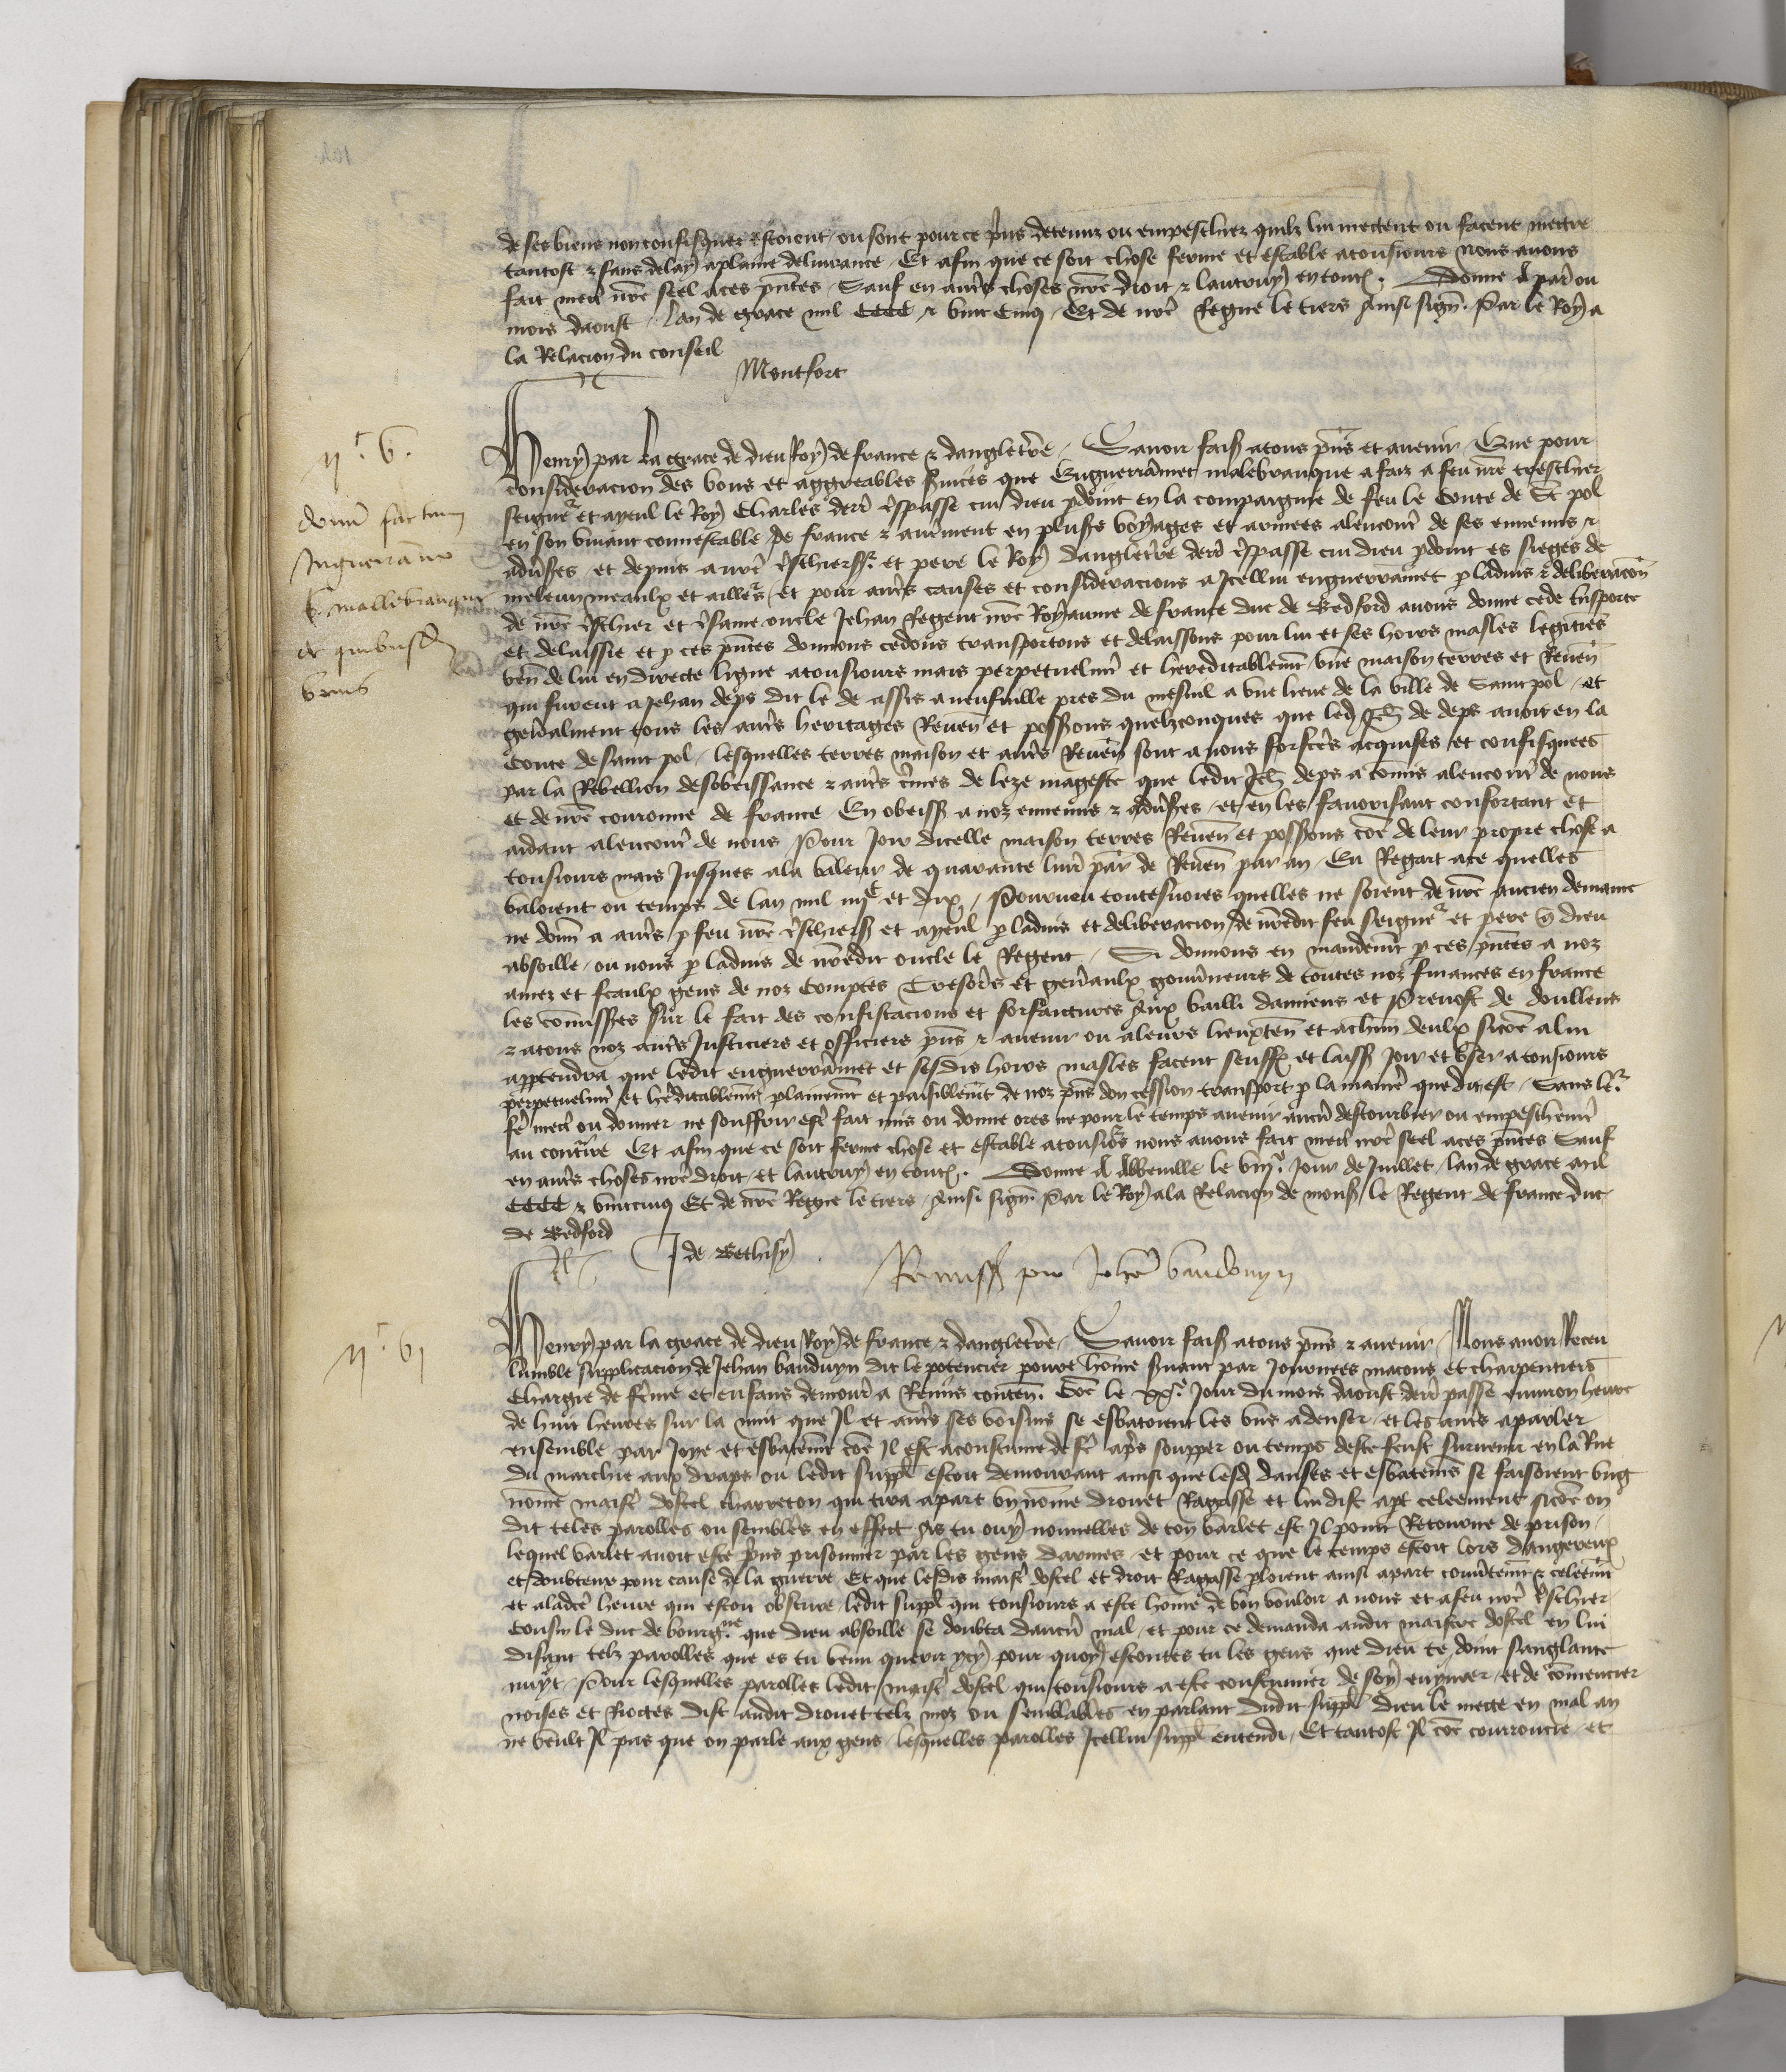 de ses biens non confisquez estoient ou sont pour ce prins detenuz ou empeschiez quilz lui mettent ou facent mettre
tantost & sans delay a plaine deliurance Et afin que ce soit chose ferme et estable a tousiours nous auons
fait mectre nre seel a ces pntes Sauf en autres choses nre droit & lautruy en toutes Donne a paris ou
mois daoust Lan de grace mil CCCC & vint cinq Et de nre Regne le tiers Ainsi signe Par le Roy a
la Relacion du conseil
Montfort
Henry par la grace de dieu Roy de france & dangleterre Sauoir faiss a tous pns et auenir Que pour
consideracion des bons et aggreables seruices que Enguerrannet malebranque a faiz a feu nre treschier
seigneur et ayeul le Roy Charles derr trespasse cui dieu pdoint en la compaignie de feu le Conte de St pol
en son viuant connestable de france & autrement en plusrs voyages et armees alencontre de ses ennemis &
aduersres et depuis a nre treschier sr et pere le Roy dangleterre derr trespasse cui dieu pdoint es sieges de
meleun meaulx et ailleurs et pour autres causes et consideracions a Icellui enguerrannet p laduis & deliberacon
de nre treschier et tresame oncle Jehan Regent nre Royaume de france duc de Bedford auons donne cede transporte
et delaissie et p ces pntes donnons cedons transportons et delaissons pour lui et ses hoirs masles legitimes
ven de lui en directe ligne a tousiours mais perpetuelment et hereditablement vne maison terres et Reuen
qui furent a Jehan deps dit le de assis a neufuille pres du mesnil a vne lieue de la ville de Saint pol et
generalment tous les autres heritages Reuen et possions quelzconques que led Jeh de deps auoit en la
Conte de saint pol lesquelles terres maison et autres Reuen sont a nous forfaites acquises et confisquees
par la Rebellion desobeissance & autres crimes de leze mageste que ledit Jeh deps a commis alencontre de nous
et de nre couronne de france En obeissant a noz ennemis & aduersres et en les fauorisant confortant et
aidant alencontre de nous Pour Joir dicelle maison terres Reuen et possions come de leur propre chose a
tousiours mais Jusques a la valeur de quarante liures par de Reuen par an Eu Regart a ce quelles
valoient ou temps de lan mil iiijC et dix Pourueu toutesuoies quelles ne soient de nre ancien demaine
ne donn a autres p feu nre treschier sr et ayeul p laduis et deliberacion de nredit feu Seigneur et pere q dieu
absoille ou nous p laduis de nredit oncle le Regent Si donnons en mandement p ces pntes a noz
amez et feaulx gens de noz Comptes Tresoriers et generaulx gouuerneurs de toutes noz finances en france
les commissres sur le fait des confiscacions et forfaictures Aux bailli damiens et Preuost de doullens
& a tous noz autres Justiciers et officiers pns & auenir ou a leurs lieuxten et a chun deulx sicome a lui
apptendra que ledit enguerrannet et sesdis hoirs masles facent seuffrent et laissent Joir et vser a tousiours
perpetuelment et hereditablement plainement et paisiblement de noz pns don cession transport p la maniere que dit est Sans leur
fe mectre ou donner ne souffrir estre fait mis ou donne ores ne pour le temps auenir aucun destourbier ou empeschement
au contraire Et afin que ce soit ferme chose et estable a tousiours nous auons fait mectre nre seel a ces pntes Sauf
en autres choses nre droit et lautruy en toutes Donne a Abbeuille le viije Jour de Juillet Lan de grace mil
CCCC & vint cinq Et de nre Regne le tiers Ainsi signe Par le Roy a la Relacion de mons le Regent de france duc
de Bedford
J de Bethisy
Remiss pro Johe baudouyn
Henry par la grace de dieu Roy de france & dangleterre Sauoir faiss a tous pns & auenir Nous auoir Receu
lumble supplicacion de Jehan bauduyn dit le potencier poure home seruant par Journees macons et charpentiers
Chargie de feme et enfans demour a Reims conten Que le xxe Jour du mois daoust derr passe enuiron heure
de huit heures sur la nuit que Il et autres ses voisins se esbatoient les vns a denser et les autres a parler
ensemble par Joye et esbatement come Il est acoustume de fe apres soupper ou temps deste feust suruenu en la Rue
du marchie aux draps ou ledit suppl estoit demourant ainsi que lesd danses et esbatemens se faisoient vng
nome maistre dostel charreton qui tira a part vn nome drouet Ragasse et lui dist apt celeement sicome on
dit teles parolles ou semblables en effect As tu ouy nouuelles de ton varlet est Il point Retourne de prison
lequel varlet auoit este prins prisonnier par les gens darmes et pour ce que le temps estoit lors dangereux
et doubteux pour cause de la guerre Et que lesdis maistre dostel et drouet Ragasse ploient ainsi a part couuertement & celeement
et a ladicte heure qui estoit obscure ledit suppl qui tousiours a este home de bon vouloir a nous et a feu nre treschier
Cousin le duc de bourgne que dieu absoille se doubta daucun mal et pour ce demanda audit maistre dostel en lui
disant telz parolles que es tu venu querir ycy pour quoy escoutes tu les gens que dieu te doint sanglante
nuyt Pour lesquelles parolles ledit maistre dostel qui tousiours a este coustumier de soy enyurer et de comencier
noises et Riottes dist audit drouet telz moz ou semblables en parlant dudit suppl dieu le mette en mal an
ne veult Il pas que on parle aux gens lesquelles parolles Icellui suppl entendi Et tantost Il come courroucie et
donum factum
Inguerranno
malebranque
de quibusd
bonis